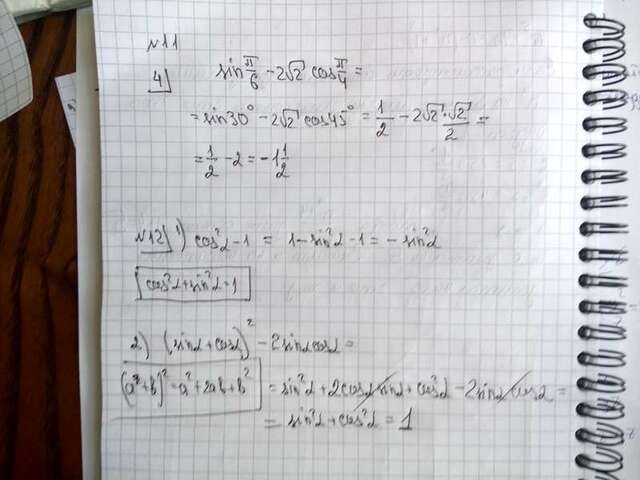 №11
4) sin π/6 - 2√2 cos π/4 =
= sin30° - 2√2 cos45° = 1/2 - 2√2·√2/2 =
= 1/2 - 2 = -1 1/2
№12 1) cos²α - 1 = 1 - sin²α - 1 = - sin²α
cos²α + sin²α = 1
2) (sinα + cosα)² - 2sinα cosα =
(a²+b)² = a² + 2ab + b² = sin²α + 2cosα sinα + cos²α - 2sinα cosα =
= sin²α + cos²α = 1